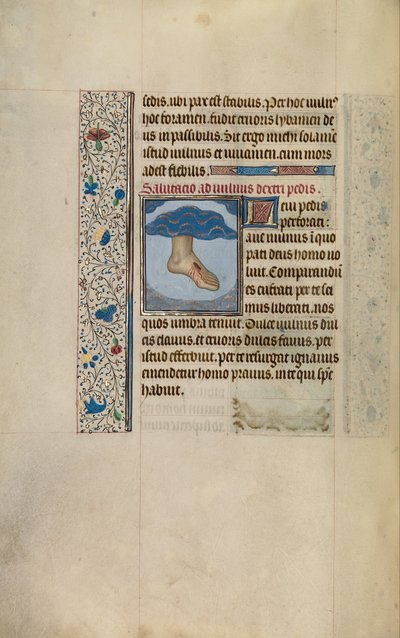 sedis. ubi pax est stabilis. Per hoc uulnꝰ
hoc foramen. fudit cruoris lybamen de
us in passibilis. Sit ergo michi solamē
istud uulnus et uiuamen. cum mors
adest flebilis.
Salutacio ad uulnus dextri pedis.
Leui pedis
perforati:
aue uulnus ī quo
pati deus homo uo
luit. Comparandū
es eufrati per te sci
mus liberati. nos
quos umbra tenuit. Dulce uulnus dul
cis clauus. et cruoris dulcis fauus. per
istud efferbuit. per te resurgat ignauus
emendetur homo prauus. in te qui spē
habuit.